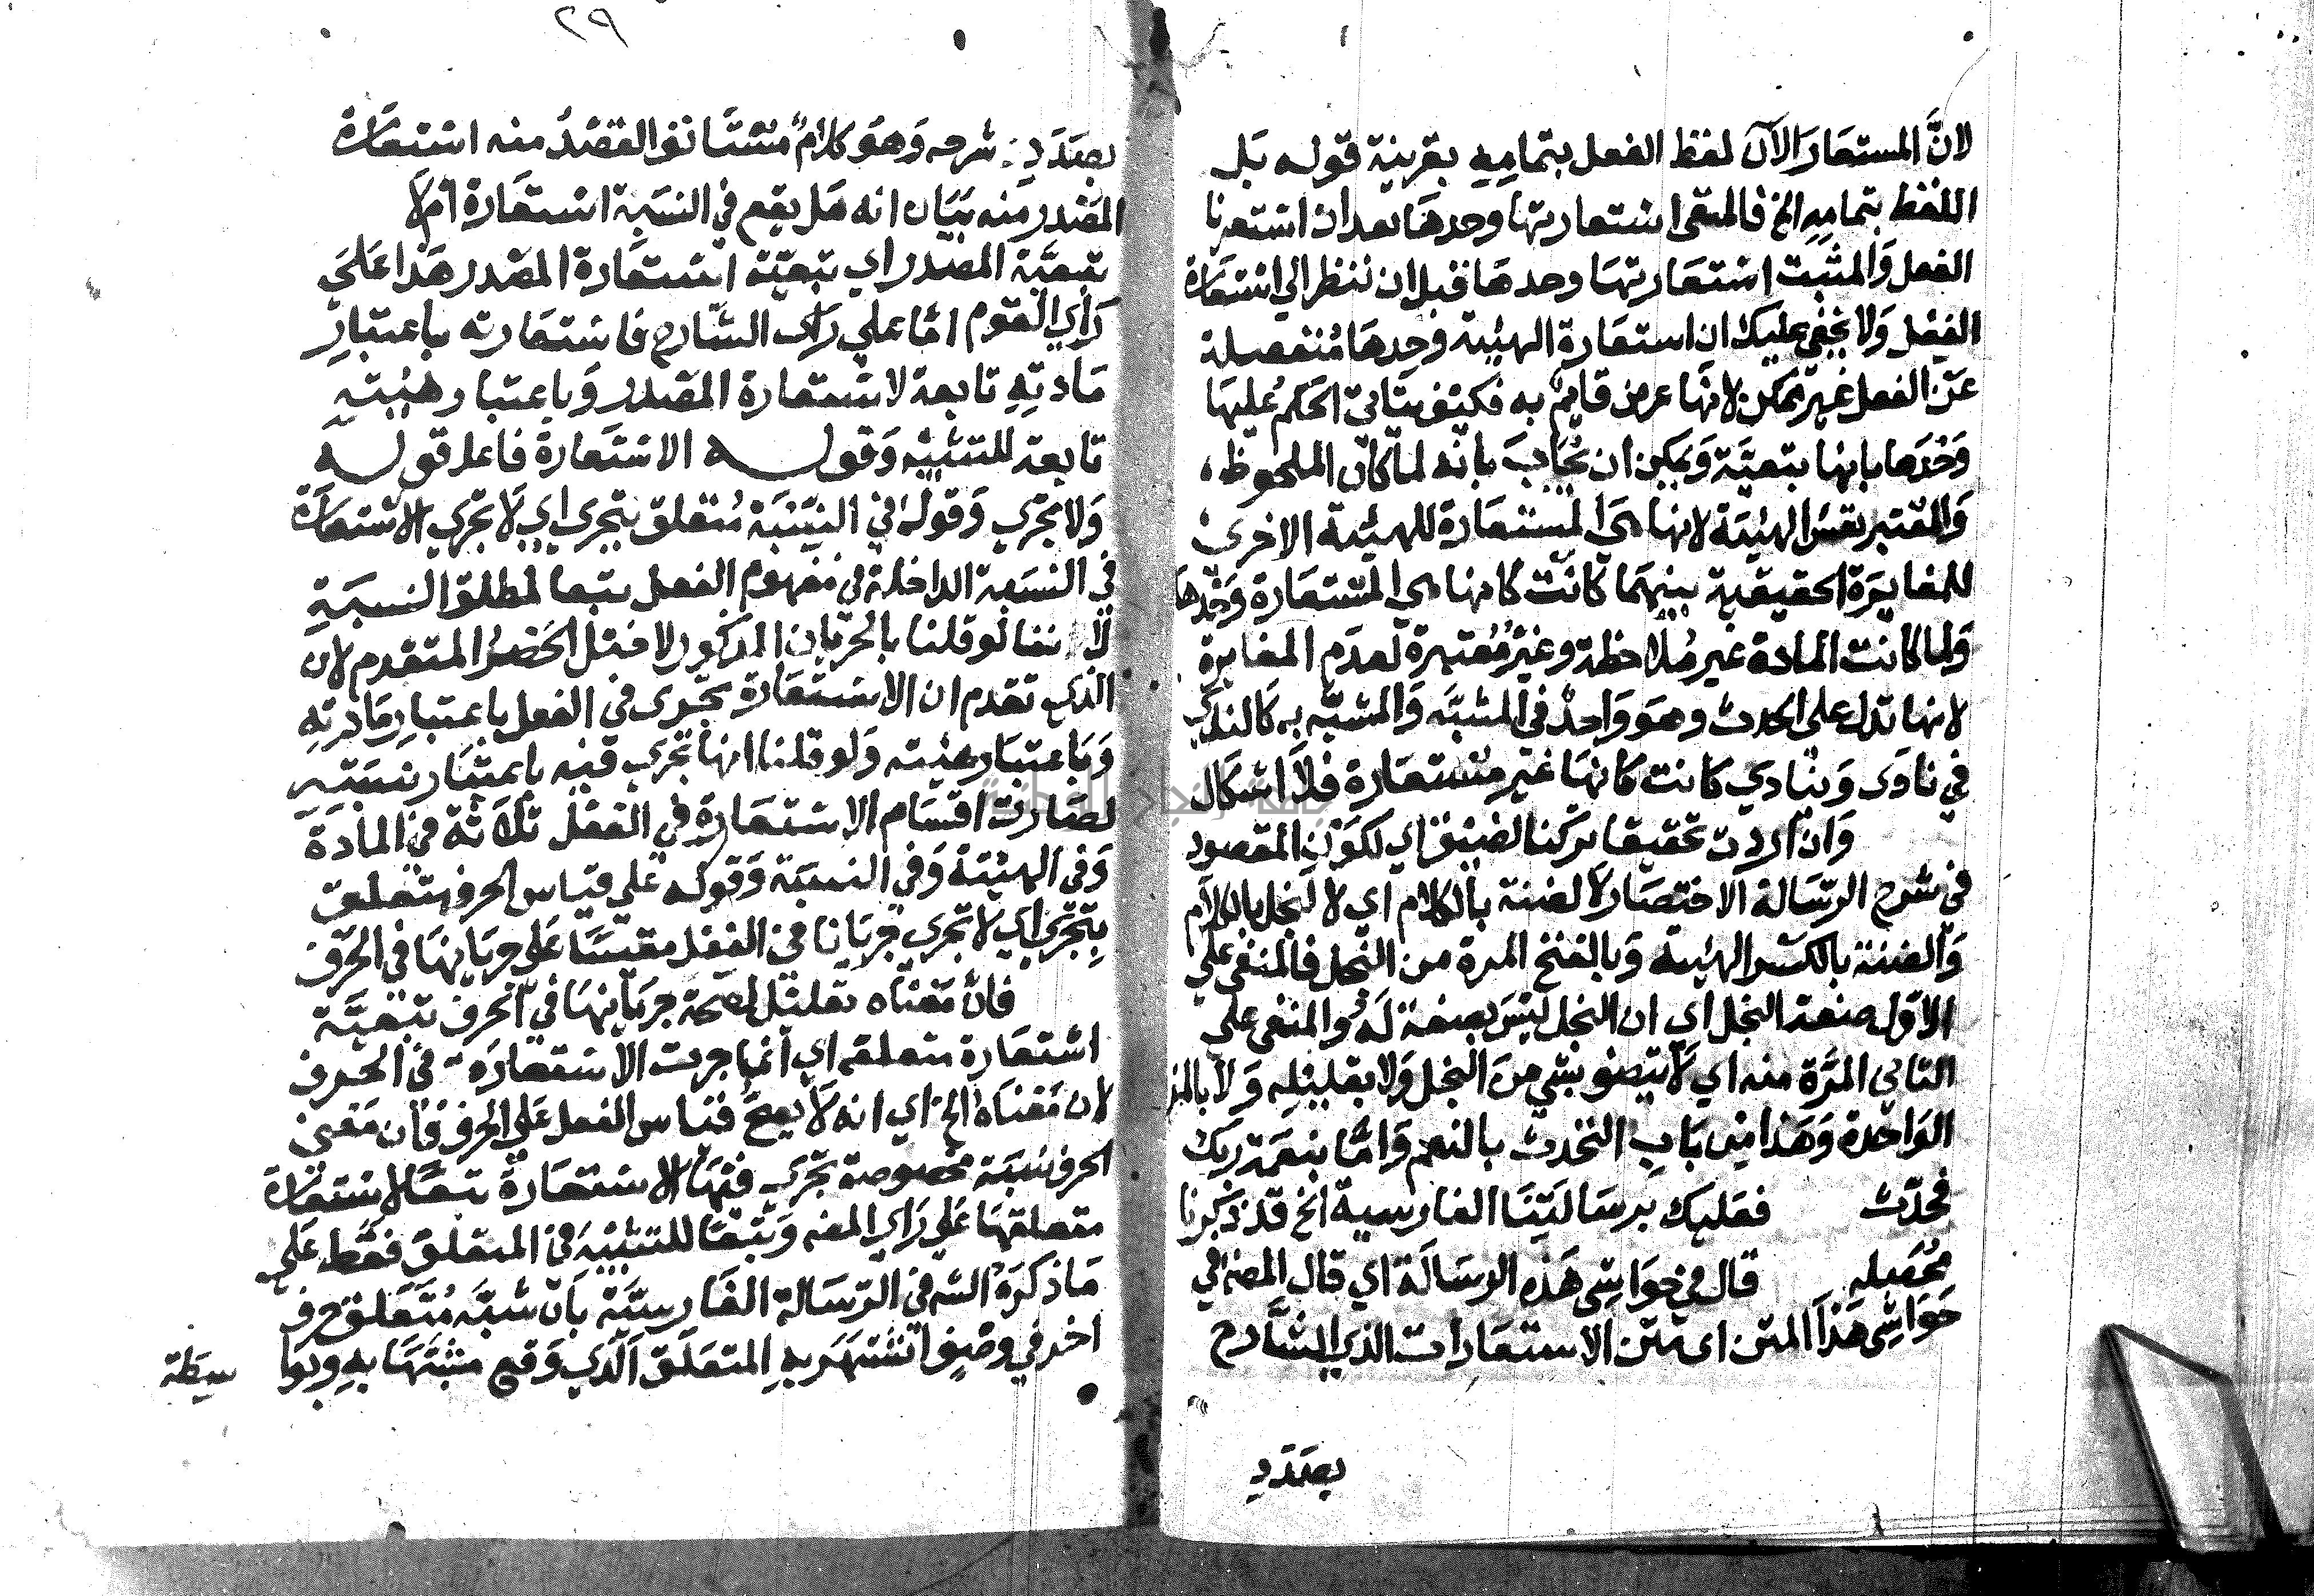 لانَّ المستعار الآن لفظ الفعل بتمامه بقرينة قوله بَل
اللفظ بتمامه الخ فالمنفي استعارتها وحدها بعد ان استعرنا
الفعل وَالمثبت استعارتها وحدها قبل ان ننظر الي استعارة
الفعل وَلا يخفي عليك ان استعارة الهيئة وحدها مُنفصلة
عَن الفعل غير ممكن لانها عرض قايم به فكيف يتاتي الحكم عليها
وَحْدَها بانها بتعيَّة وَيمكن ان يُجَابَ بانه لما كان الملحوظ
وَالمعتبر نفس الهيئة لانها هي المستعارة للهيئة الاخري
للمغايرَة الحقيقية بينهما كانت كانها هي المستعارة وَحْدها
وَلما كانت المادة غير مُلاحظة وغير مُعتبرة لعدَم المغايرة
لانها تدل علي الحدث وهو وَاحد في المشبَّه وَالمشبَّه به كالندي
في نادَى وَينادي كانت كانها غير مُستعارة فلا اشكال
وَان اردت تحقيقا تركنا لضيق اي لكوْنِ المقصود
في شرح الرّسَالة الاختصار لا لضنة بالكلام اي لا لبخل بالكلام
وَالضنة بالكسر الهيئة وَبالفتح المرة من البخل فالمنفي علي
الاوَّل صفة البخل اي ان البخل ليسَ بصفة لَهُ والمنفي علي
الثاني المَرَّة منه اي لا يتصف بشي منَ البخل وَلا بقليلِه وَلا بالمرة
الوَاحدة وَهَذا مِن بَابِ التحدث بالنعم وَامَّا بنعمَة رَبك
فحدّث فعليك برسَالَتِنَا الفارسية الخ قد ذكرنا
مُحَصله قال في حَوَاشِي هَذه الرسَالَة اي قال المصَ في
حَوَاشِي هَذا المتن اي متن الاستعارات الذي الشَّارح
بصَدَدِ
٢٩
بصَدَدِ شرحه وَهوَ كلامٌ مُسْتَانف القصْدُ منه استعَارة
المصْدر منه بَيَان انه هَل يقع في النسَبة استعارة امْ لاَ
بتعيَّة المصْدر اي بتعيّة استعَارة المصْدر هَذا عَلَي
رَأي القوم امَّا علي رَاي الشّارح فاستعارته باعتبارِ
مَادتِهِ تابعة لاستعارة المصْدر وَباعتبار هيئتِهِ
تابعة للتشبيْه وَقولــه الاستعارة فاعل قولــه
وَلا تجري وَقوله في النِّسْبَة مُتعلق بتجري اي لا تجري الاستعارَة
في النسَبة الداخلة في مفهوم الفعل تبعا لمطلق النسبَة
لاننا لو قلنا بالجريان المذكور لاختل الحَصْرُ المتقدم لان
الذي تقدم ان الاستعارة تجري في الفعل باعتبارِ مَادتِهِ
وَبَاعتبَار هيئته وَلو قلنا انها تجري فيه باعتبَار نسبَته
لصَارت اقسَام الاستعَارة في الفعْل ثلاَثة في المادَة
وَفي الهيئة وَفي النسبَة وَقولــه علي قياس الحرف متعلق
بِتجْرِي اي لا تجري جَرَيَانا في الفعْل مقيسًا عَلي جريَانها في الحَرْف
فانَّ مَعْنَاه تعليْل لصحة جريَانهَا في الحَرف بتعيَّة
استعَارة متعلقه اي انما جرت الاستعارَة في الحَرف
لان مَعْنَاهُ الخ اي انه لا يصحُّ قياس الفعل عَلي الحرف فان مَعني
الحرف نسَبة مخصوصة تجري فيْهَا الاستعارة تبعًا لاستعَارَة
متعلقهَا عَلي رَاي المصَ وَتبعًا للتشبِيْه في المتعَلق فقَط عَلي
مَا ذكرَهُ الشه في الرّسَالة الفَارسيَّة بَان شبَّه مُتَعَلق حرف
اخر في وصْفٍ اشتهَر بهِ المتعَلق الّذي وَقع مشبَّهًا بهِ وبوَا
سِطَة